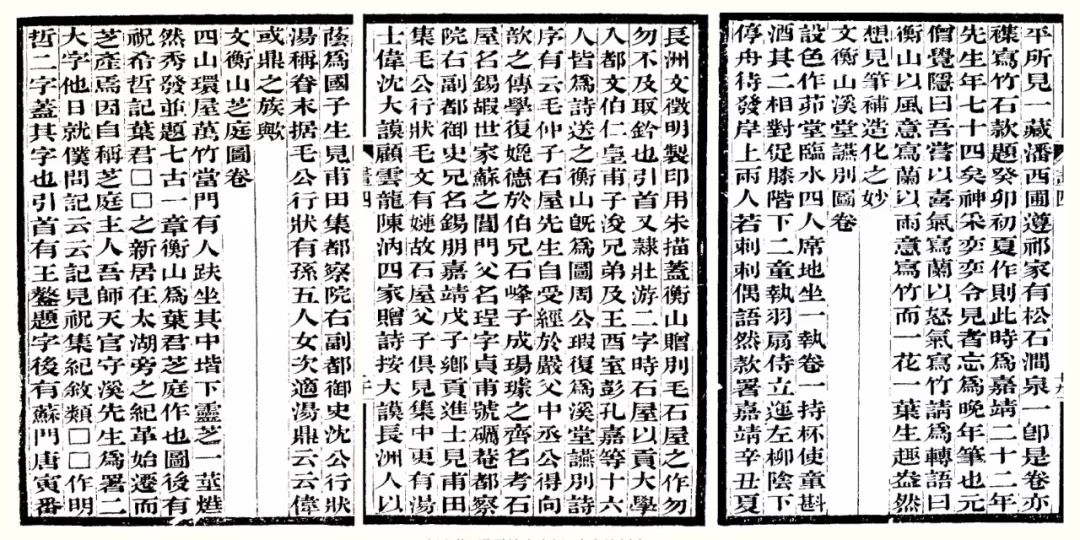 平所見一藏潘西圃遵祁家有松石澗泉一卽是卷亦
襍寫竹石款題癸卯初夏作則此時爲嘉靖二十二年
先生年七十四矣神采奕奕令見者忘爲晚年筆也元
僧覺隱曰吾嘗以喜氣寫蘭以怒氣寫竹請爲轉語曰
衡山以風意寫蘭以雨意寫竹而一花一葉生趣盎然
想見筆補造化之妙
文衡山溪堂讌別圖卷
設色作茆堂臨水四人席地坐一執卷一持杯使童斟
酒其二相對促膝階下二童執羽扇侍立蓮左柳陰下
停舟待發岸上兩人若刺刺偶語然款署嘉靖辛丑夏
長洲文徵明製印用朱描蓋衡山贈別毛石屋之作勿
勿不及取鈐也引首又隸壯游二字時石屋以貢大學
入都文伯仁皇甫子浚兄弟及王酉室彭孔嘉等十六
人皆爲詩送之衡山旣爲圖周公瑕復爲溪堂讌別詩
序有云毛仲子石屋先生自受經於嚴父中丞公得向
歆之傳學復媲德於伯兄石峰子成瑒璩之齊名考石
屋名錫嘏世家蘇之閶門父名珵字貞甫號礪菴都察
院右副都御史兄名錫朋嘉靖戊子鄉貢進士見甫田
集毛公行狀毛文有嫌故石屋父子俱見集中更有湯
士偉沈大謨顧雲龍陳汭四家贈詩按大謨長洲人以
蔭爲國子生見甫田集都察院右副都御史沈公行狀
湯稱眷末据毛公行狀有孫五人女次適湯鼎云云偉
或鼎之族歟
文衡山芝庭圖卷
四山環屋萬竹當門有人趺坐其中堦下靈芝一莖燁
然秀發並題七古一章衡山爲葉君芝庭作也圖後有
祝希哲記葉君□□之新居在太湖旁之紀革始遷而
芝產焉因自稱芝庭主人吾師天官守溪先生爲署二
大字他日就僕問記云云記見祝集紀敘類□□作明
哲二字蓋其字也引首有王鏊題字後有蘇門唐寅番